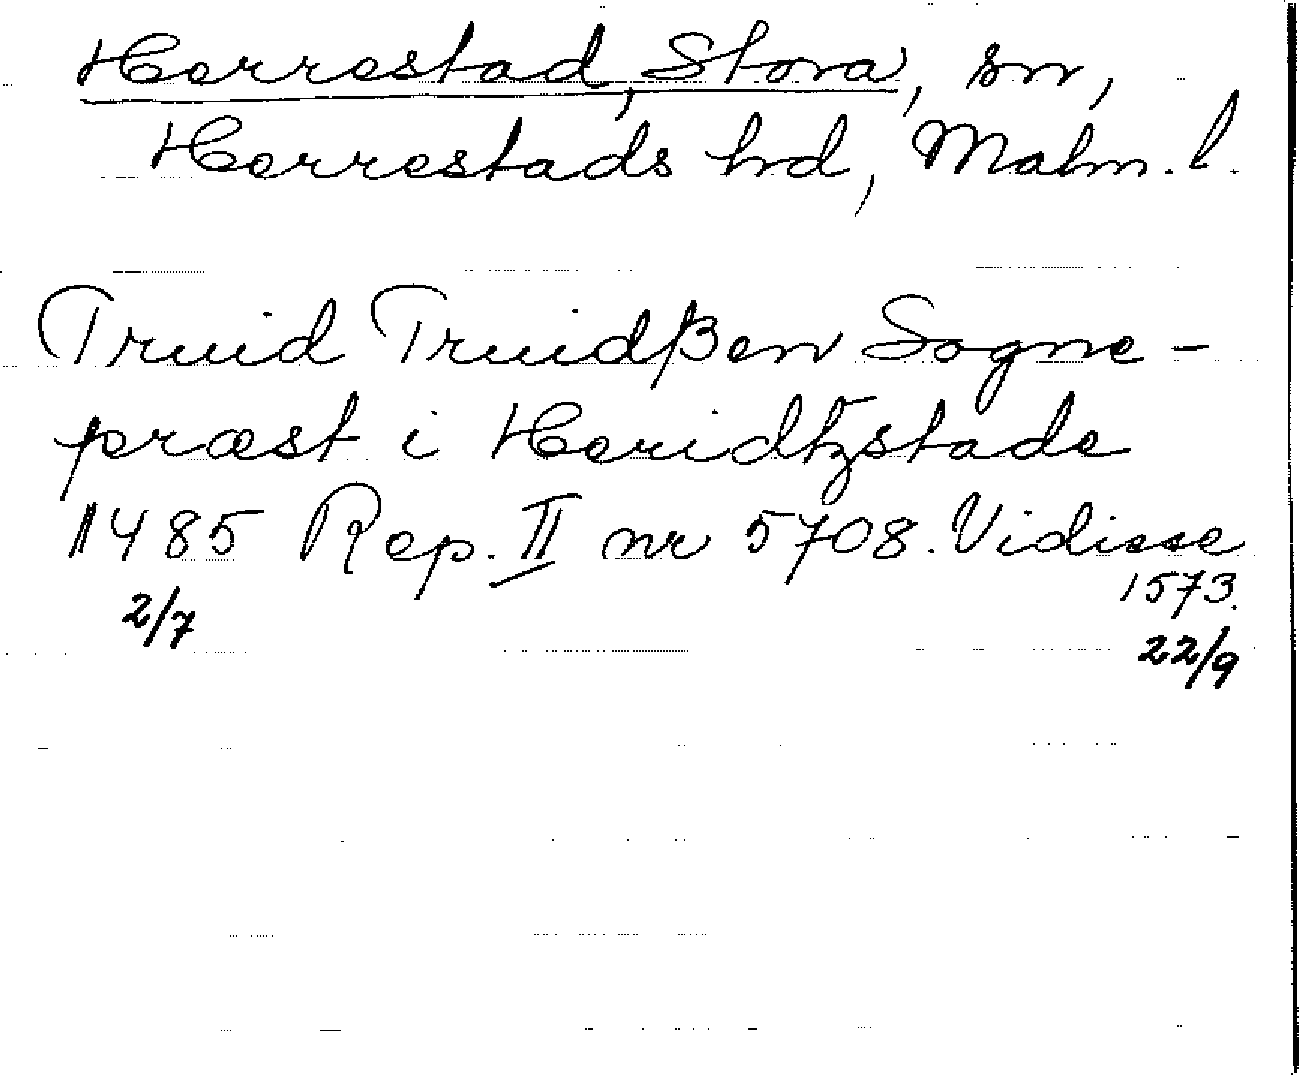 Herrestad, Stora, sn,
Herrestads hd, Malm. l.
Truid Truidßen Sogne-
præst i Heridtzstade
1485 Rep. II nr 5708. Vidisse
1573.
2/7
22/9